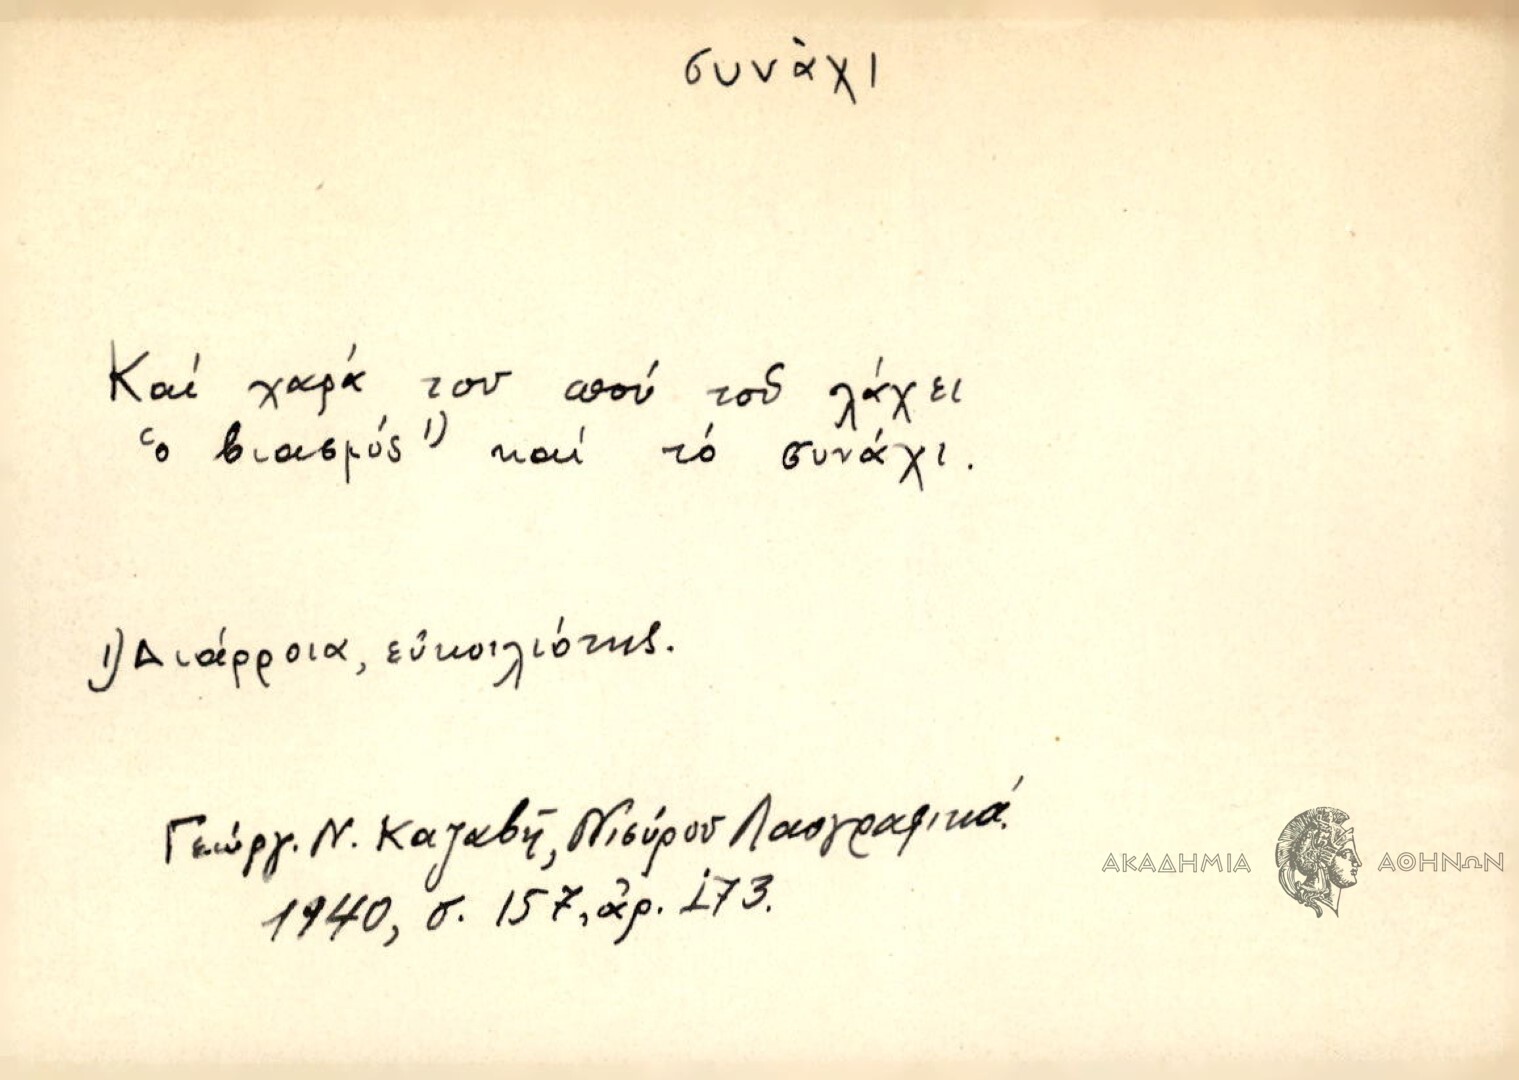 συνάχι
Καί χαρά του απού τού λάχει
ὁ βιασμός 1) καί τό συνάχι.
1) Διάρροια, εὐκοιλιότης.
Γεώργ. Ν. Καζαβῆ, Νισύρου Λαογραφικά.
1940, σ. 157, ἀρ. 173.
ΑΚΑΔΗΜΙΑ ΑΘΗΝΩΝ